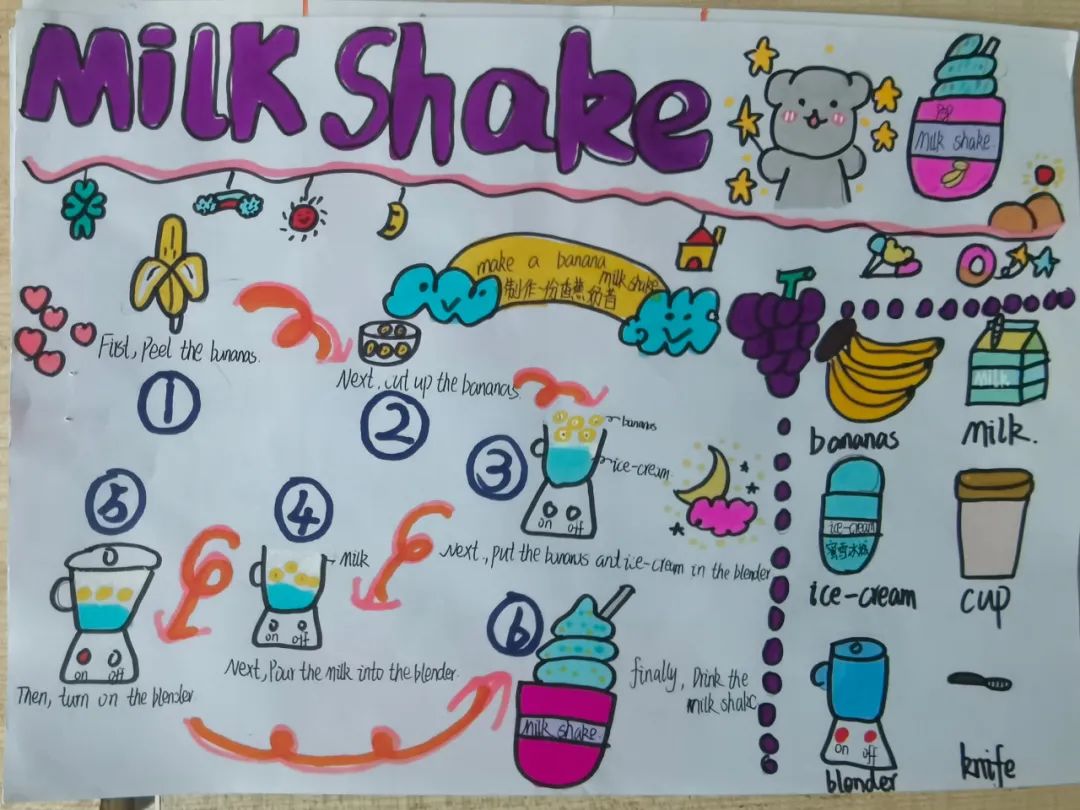 Milk Shake
Milk shake
make a banana
milk shake
制作一份香蕉奶昔
First, Peel the bananas.
①
Next, cut up the bananas.
②
③
bananas
ice-cream
on off
Next, put the bananas and ice-cream in the blender
④
milk
on off
Next, Pour the milk into the blender.
⑤
on off
Then, turn on the blender
⑥
Milk shake
finally, Drink the
milk shake
bananas
Milk
milk.
ice-cream
蜜雪冰城
ice-cream
cup
on off
blender
knife